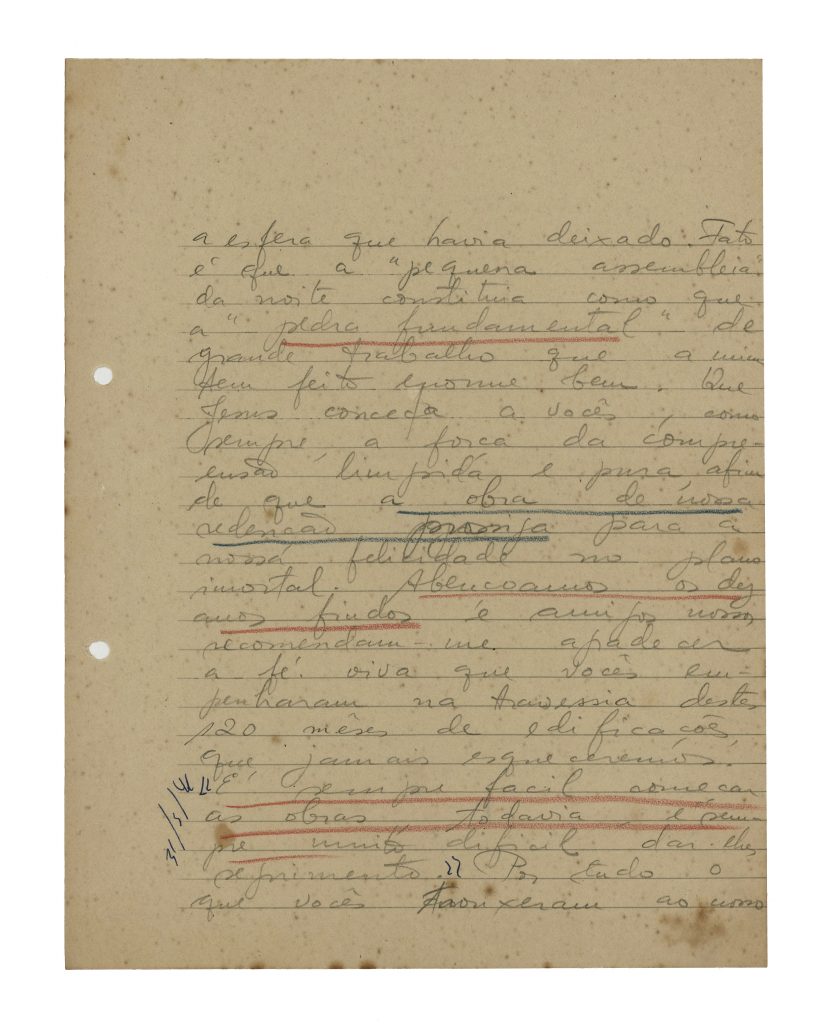 a esfera que havia deixado. Fato
é que a "pequena assembleia"
da noite constituia como que
a "pedra fundamental" de
grande trabalho que a mim
tem feito enorme bem. Que
Jesus conceda a vocês, como
sempre, a força da compre-
ensão límpida e pura, afim
de que a obra de nossa
redenção prossiga para a
nossa felicidade no plano
imortal. Abençoamos os dez
anos findos e amigos nossos
recomendam-me agradecer
a fé viva que vocês em-
penharam na travessia destes
120 mêses de edificações,
que jamais esqueceremos.
"É sempre facil começar
as obras todavia, é sem-
pre muito dificil dar-lhes
seguimento." Por tudo o
que vocês trouxeram ao nosso